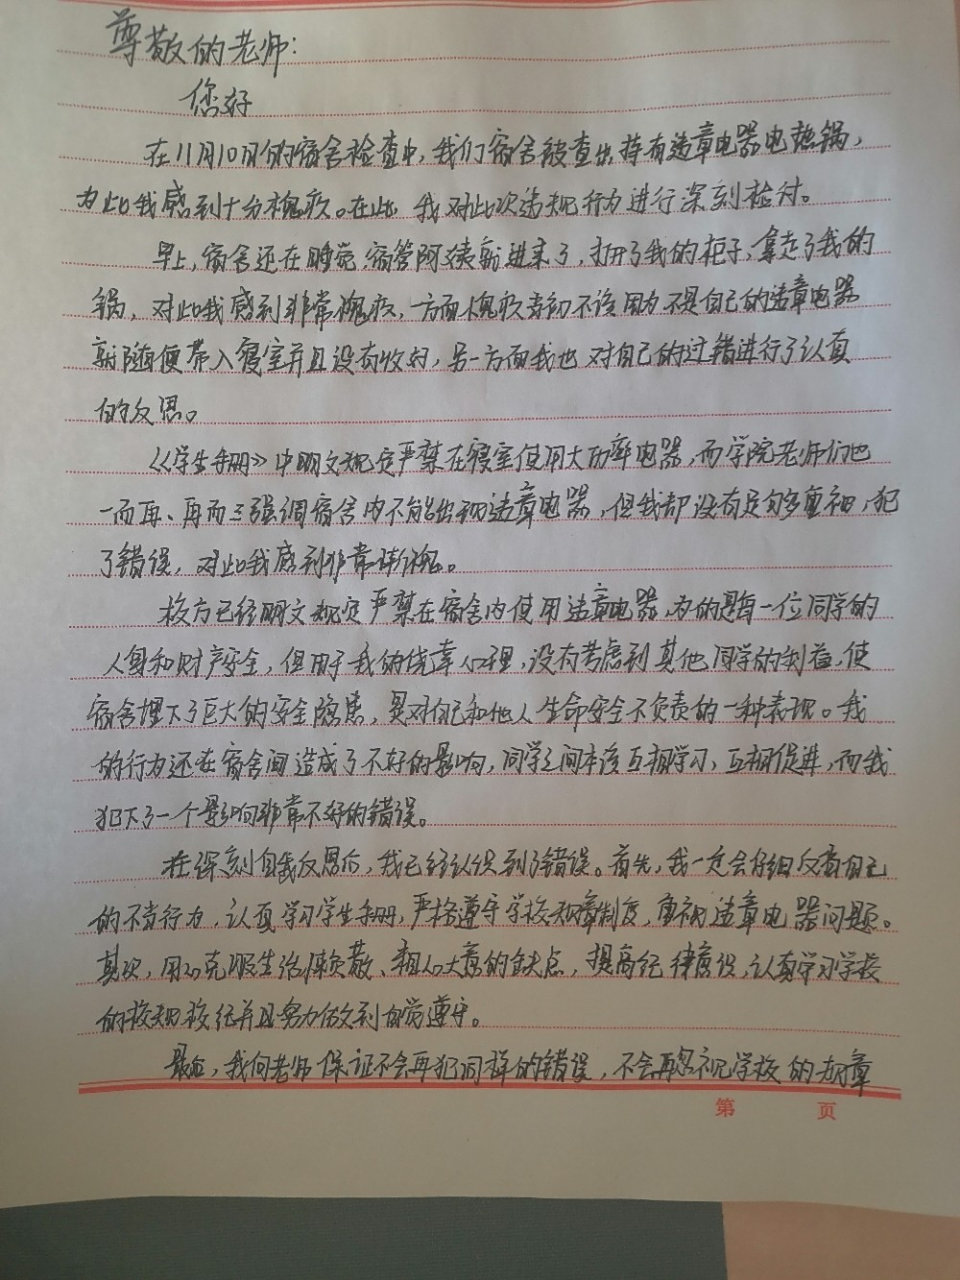 尊敬的老师:
您好
在11月10月份的宿舍检查中,我们宿舍被查出持有违章电器电热锅,
为此我感到十分愧疚。在此 我对此次违规行为进行深刻检讨。
早上,宿舍还在睡觉 宿管阿姨就进来了,打开了我的柜子,拿走了我的
锅,对此我感到非常愧疚,一方面愧疚 不该因为 自己的违章电器
就随便带入寝室并且没有收好,另一方面我也对自己的过错进行了认真
的反思。
《学生手册》中明文规定严禁在寝室使用大功率电器,而学院老师们也
一而再、再而三强调宿舍内不能出现违章电器,但我却没有足够多重视,犯
了错误,对此我感到非常惭愧。
校方已经明文规定严禁在宿舍内使用违章电器,为的是每一位同学的
人身和财产安全,但由于我的侥幸心理,没有考虑到其他同学的利益,使
宿舍埋下了巨大的安全隐患,是对自己和他人生命安全不负责的一种表现。我
的行为还在宿舍间造成了不好的影响,同学之间本该互相学习、互相促进,而我
犯下了一个影响非常不好的错误。
在深刻自我反思后,我已经认识到了错误。首先,我一定会仔细反省自己
的不当行为,认真学习学生手册,严格遵守学校规章制度,重视违章电器问题。
其次,用心克服生活懒散、粗心大意的缺点,提高纪律 ,认真学习学校
的校规校纪并且努力做到自觉遵守。
最后,我向老师保证不会再犯同样的错误,不会再忽视学校的 章
第 页